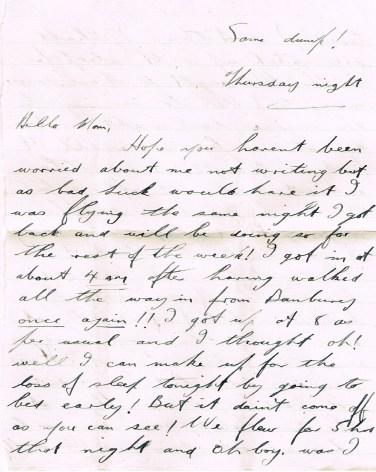 Same dump!
Thursday night
Hello Mom,
Hope you havent been
worried about me not writing but
as bad luck would have it I
was flying the same night I got
back and will be doing so for
the rest of the week! I got in at
about 4 am after having walked
all the way in from Banbury
once again!! I got up at 8 as
per usual and I thought oh!
well I can make up for the
loss of sleep tonight by going to
bed early! But it didn't come off
as you can see! We flew for 5 hrs
that night and oh boy. was I